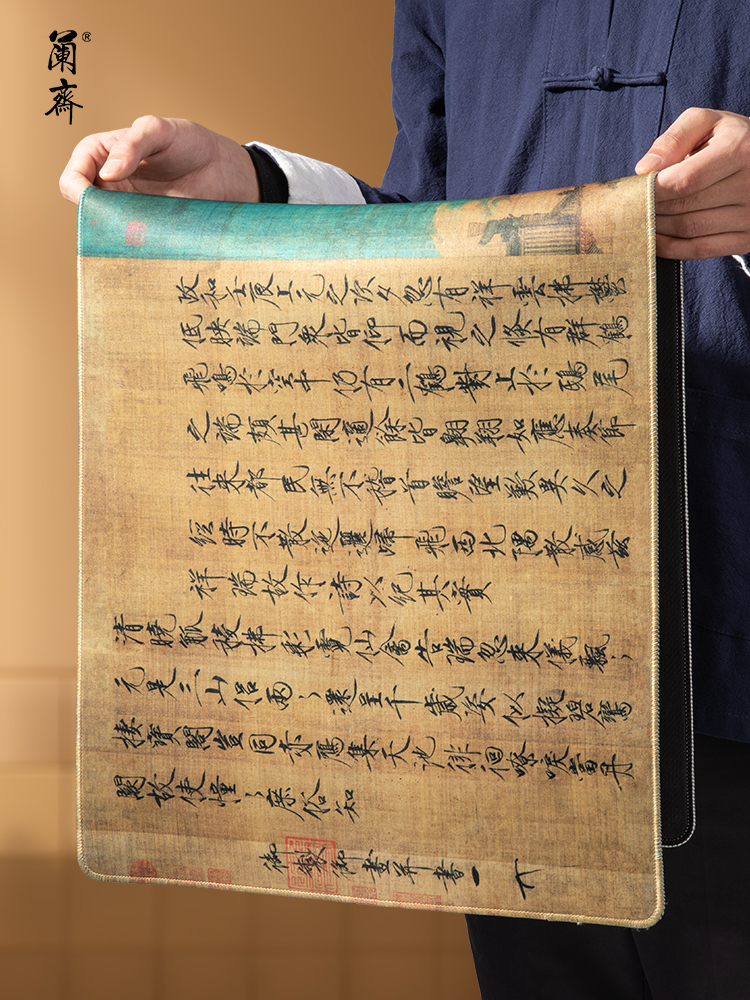 阑斋®
政和壬辰上元之次夕忽有祥雲拂鬱
低映端門衆皆仰而視之倐有群鶴
飛鳴於空中仍有二鶴對止於鴟尾
之端頗甚閑適餘皆翱翔如應奏節
往來都民無不稽首瞻望歎異久之
經時不散迤邐歸飛西北隅散感茲
祥瑞故作詩以紀其實
清曉觚稜拂彩霓仙禽告瑞忽來儀飄〻
元是三山侶兩〻還呈千歲姿似擬碧鸞
棲寶閣豈同赤鴈集天池徘徊嘹唳當丹
闕故使憧〻庶俗知
御製御畫并書